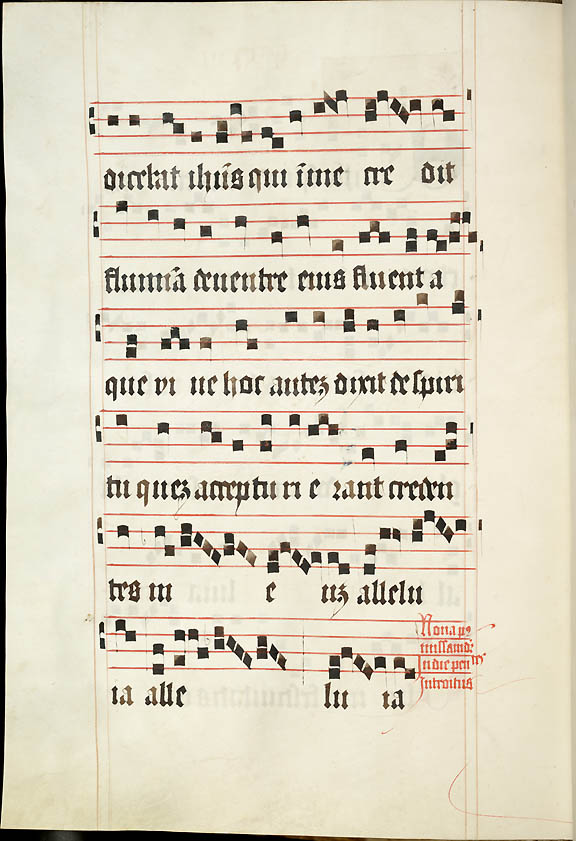 dicebat ihūs qui ī me cre dit
flumīa de ventre eius fluent a
que vi ue hoc autez dixit de spiri
tu quez accepturi e rant creden
tes in e uz allelu
ia alle lu ia
Nona p9
missa
In die pen
Introitus